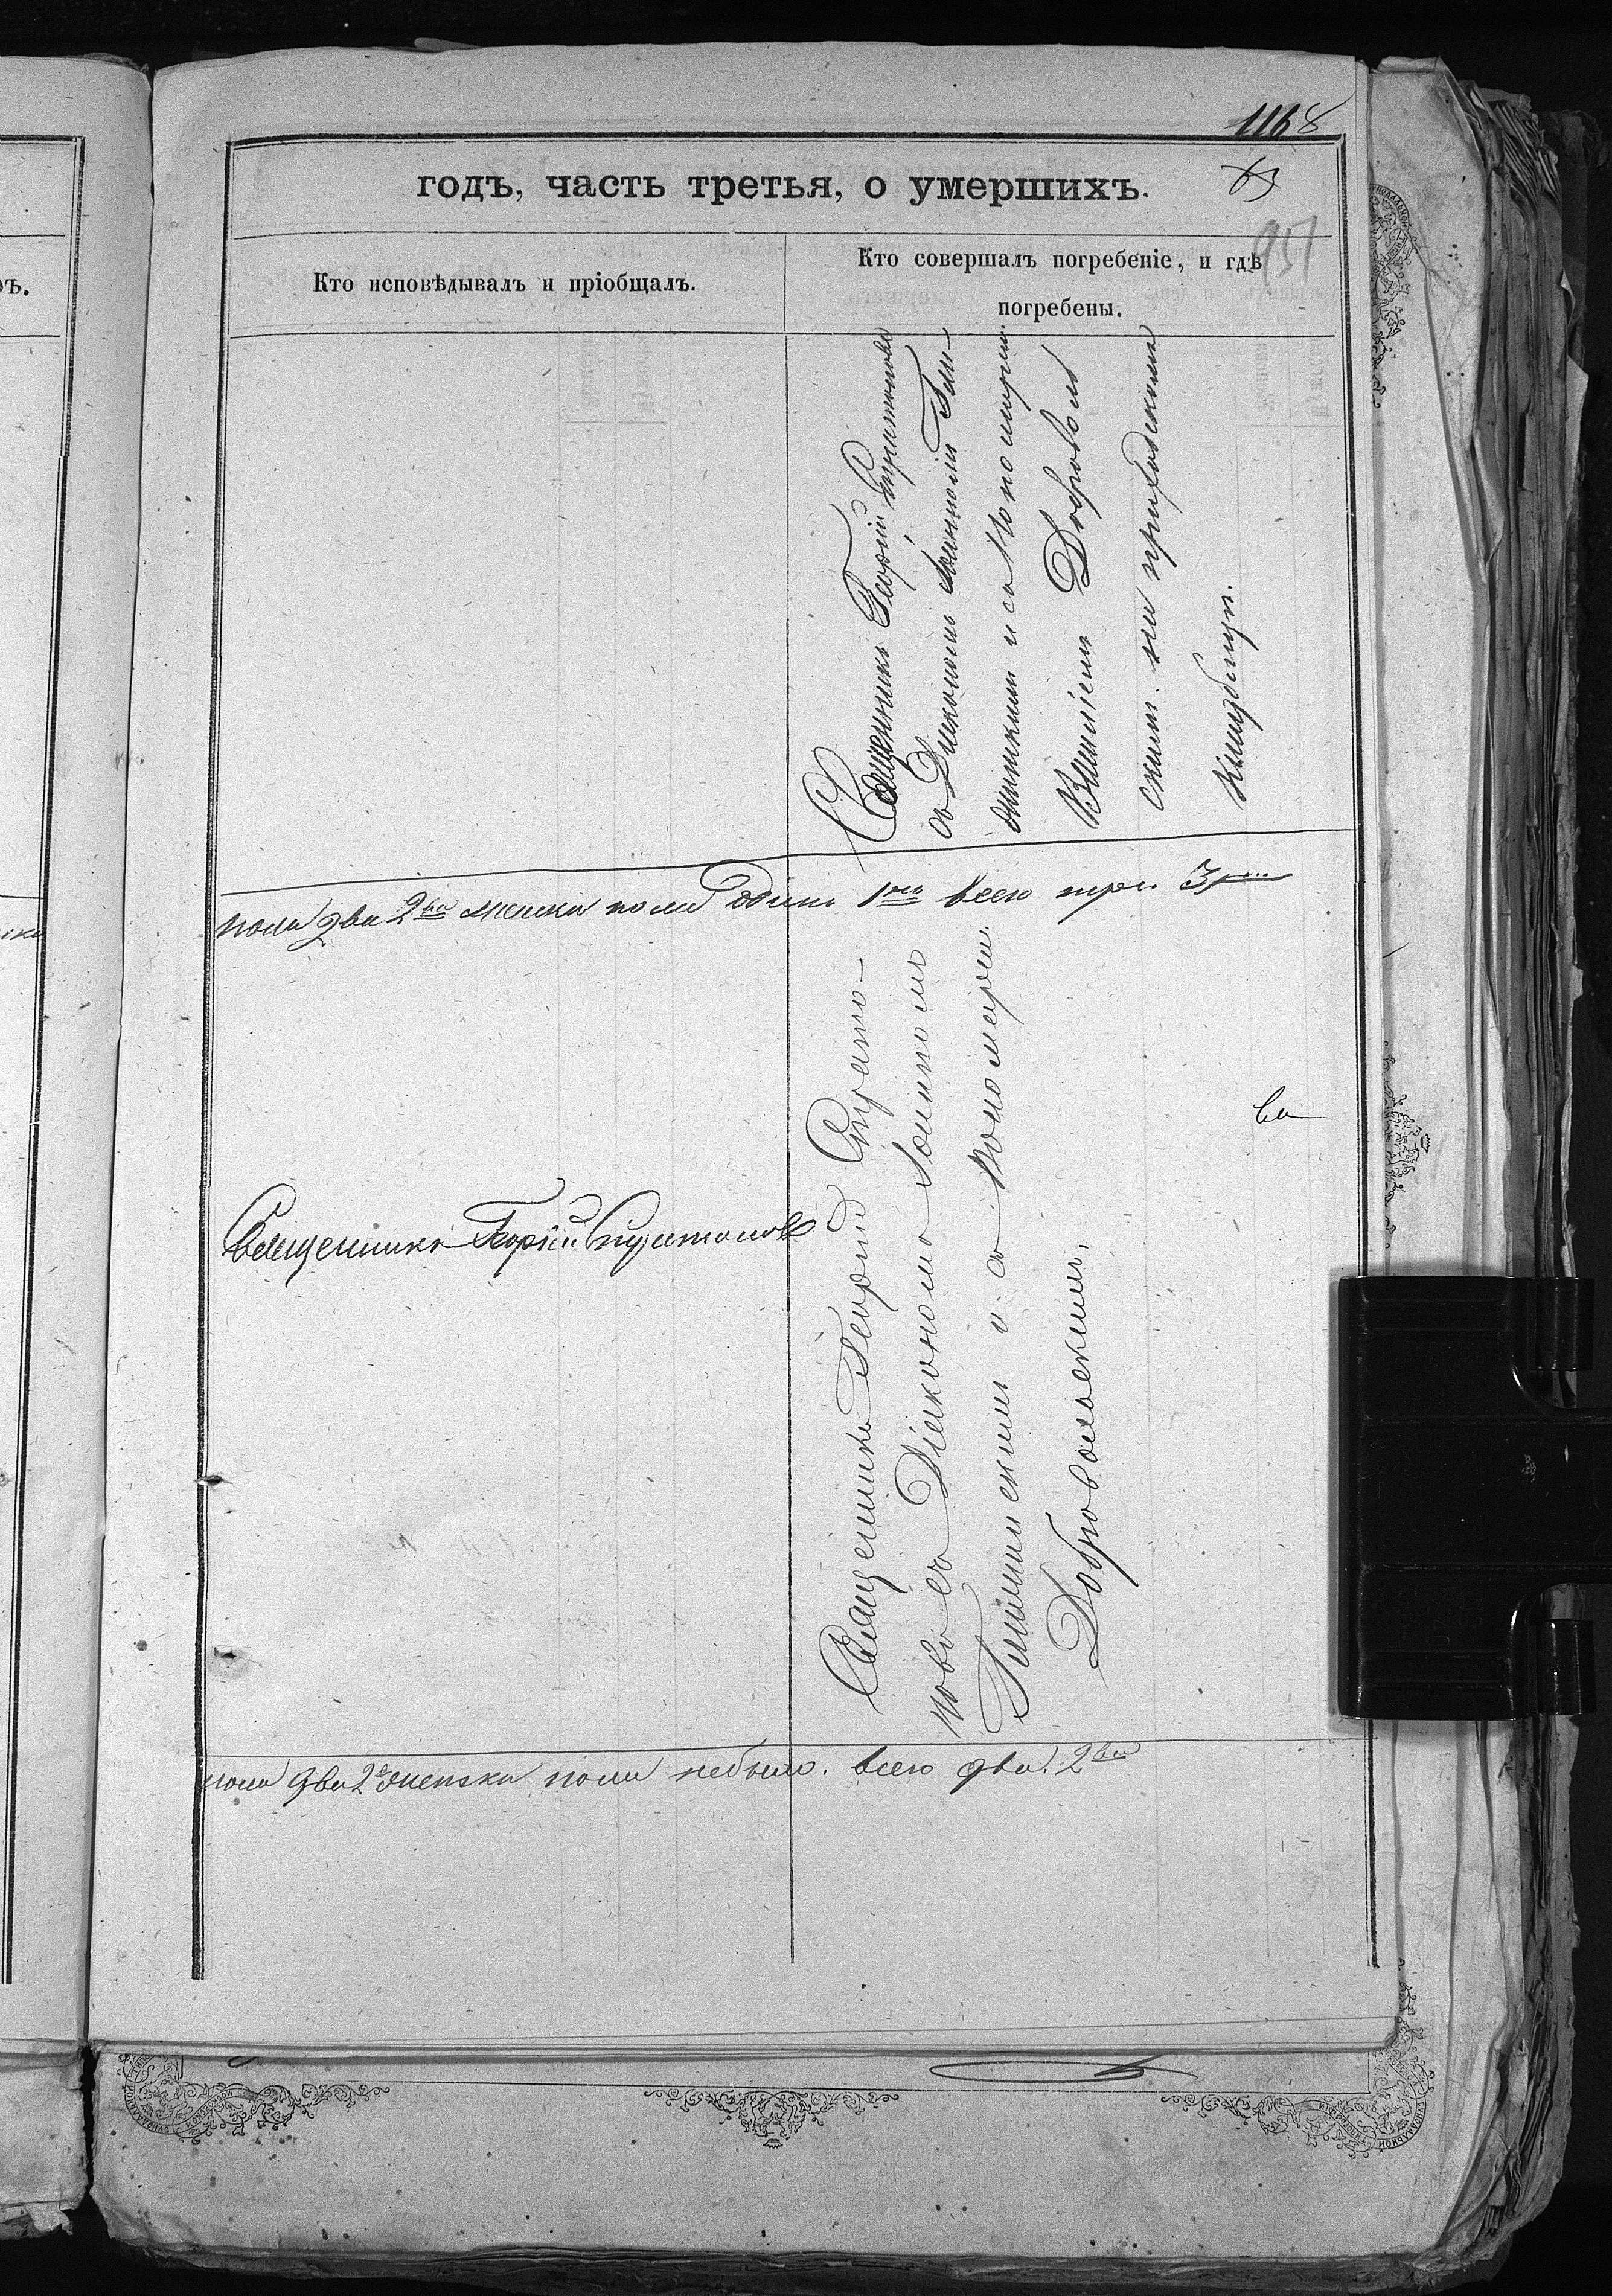 1168
годъ, часть третья, о умершихъ.
951
Кто исповѣдывалъ и пріобщалъ.
Кто совершалъ погребеніе, и гдѣ
погребены.
Священникъ Георгій
съ Діакономъ Іоанномъ
и съ Пономарем
Василіем Доброволь
ским. на приходскомъ
кладбищѣ.
пола два 2ва женска пола одинъ 1нъ всего три 3
Священникъ Георгій
Священникъ Георгій
новъ съ Діакономъ Іоанномъ
и съ Пономарем.
Добровольскимъ.
ва
пола два 2 женска пола небыло. всего два. 2ва